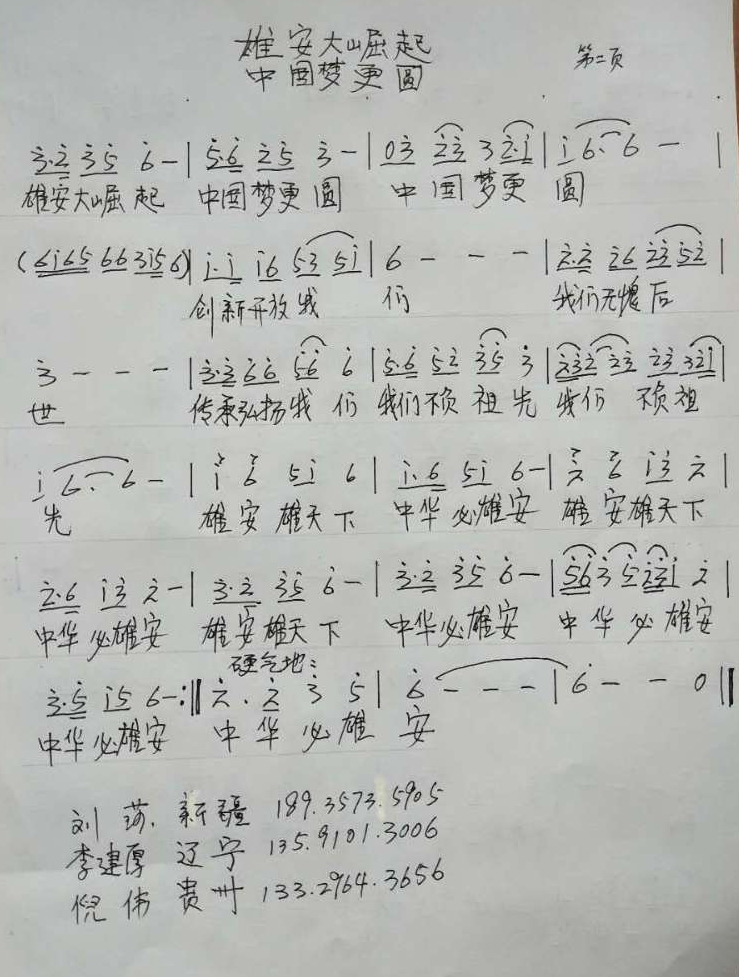 雄安大崛起
中国梦更圆
第二页
3·2 35 6 - | 5·6 25 3 - | 03 23 3 2·1 | 1 6· 6 - |
雄安大崛起 中国梦更圆 中国梦更 圆
(6165 66 3156) | 1·1 16 53 51 | 6 - - - | 2·2 26 23 52 |
创新开放我 们 我们无愧后
3 - - - | 3·2 66 56 6 | 5·6 52 35 3 | 232 23 23 321 |
世 传承弘扬我们 我们不负祖先 我们 不负祖
1 6· 6 - | 1 6 51 6 | 1·6 51 6 - | 2 6 13 2 |
先 雄安雄天下 中华必雄安 雄安雄天下
2·6 13 2 - | 3·2 35 6 - | 3·2 35 6 - | 563 5231 2 |
中华必雄安 雄安雄天下 中华必雄安 中华必雄安
硬气地:
3·5 15 6 - :|| 2· 2 3 5 | 6 - - - | 6 - - 0 ||
中华必雄安 中华必雄 安
刘 新疆 189.3573.5905
李建厚 辽宁 135.9101.3006
倪伟 贵州 133.2964.3656